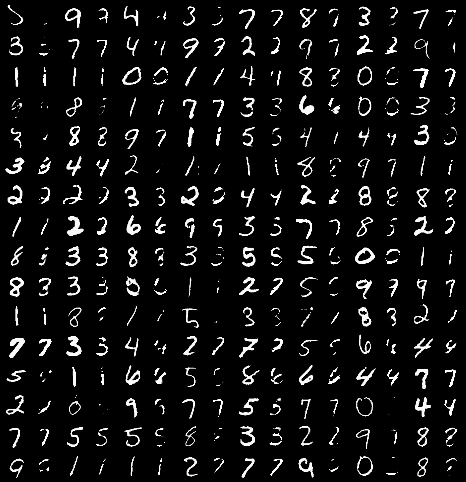 9 7 4 4 3 3 7 7 8 7 3 3 7 7
3 7 7 4 4 9 7 2 2 9 7 2 2 9 1
1 1 1 1 0 0 1 1 4 4 8 8 0 0 7 7
8 1 1 7 7 3 3 6 6 0 0 3 3
8 8 9 7 1 1 5 5 4 1 4 4 3 0
3 3 4 4 2 1 1 1 1 8 8 9 9 1 1
2 2 2 2 3 3 2 2 4 4 2 2 8 8 8 8
1 1 2 2 6 6 9 9 3 3 7 7 8 5 2 2
8 3 3 8 8 3 3 5 5 5 5 0 0 1 1
8 3 3 3 0 0 1 1 2 2 5 5 9 9 9 7
1 1 8 1 1 5 3 3 7 1 8 3 2
7 7 3 3 4 4 2 2 7 7 5 5 6 6 4 4
5 1 1 6 6 5 5 8 8 6 6 4 4 7 7
2 0 9 9 7 7 5 5 7 7 0 4 4
7 7 5 5 5 5 8 3 3 2 2 9 7 8 8
9 1 1 1 1 2 2 7 7 9 0 8 8